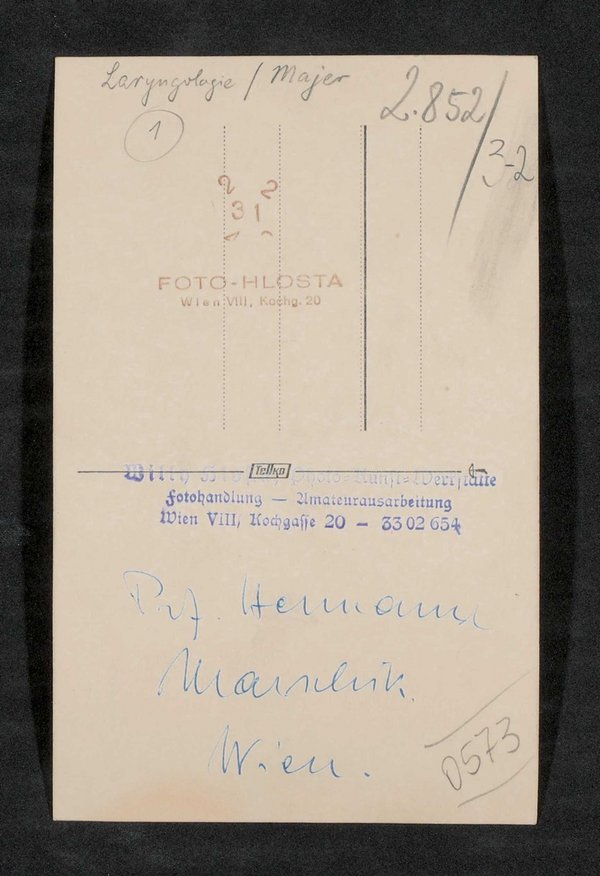 Laryngologie / Majer
2.852/
3-2
1
2 2
31
FOTO-HLOSTA
Wien VIII, Kochg. 20
Tellko
Willy Photo-Kunst-Werkstätte
Fotohandlung — Amateurausarbeitung
Wien VIII, Kochgasse 20 — 33 02 654
Prof. Hermann
Marschik
Wien.
0573